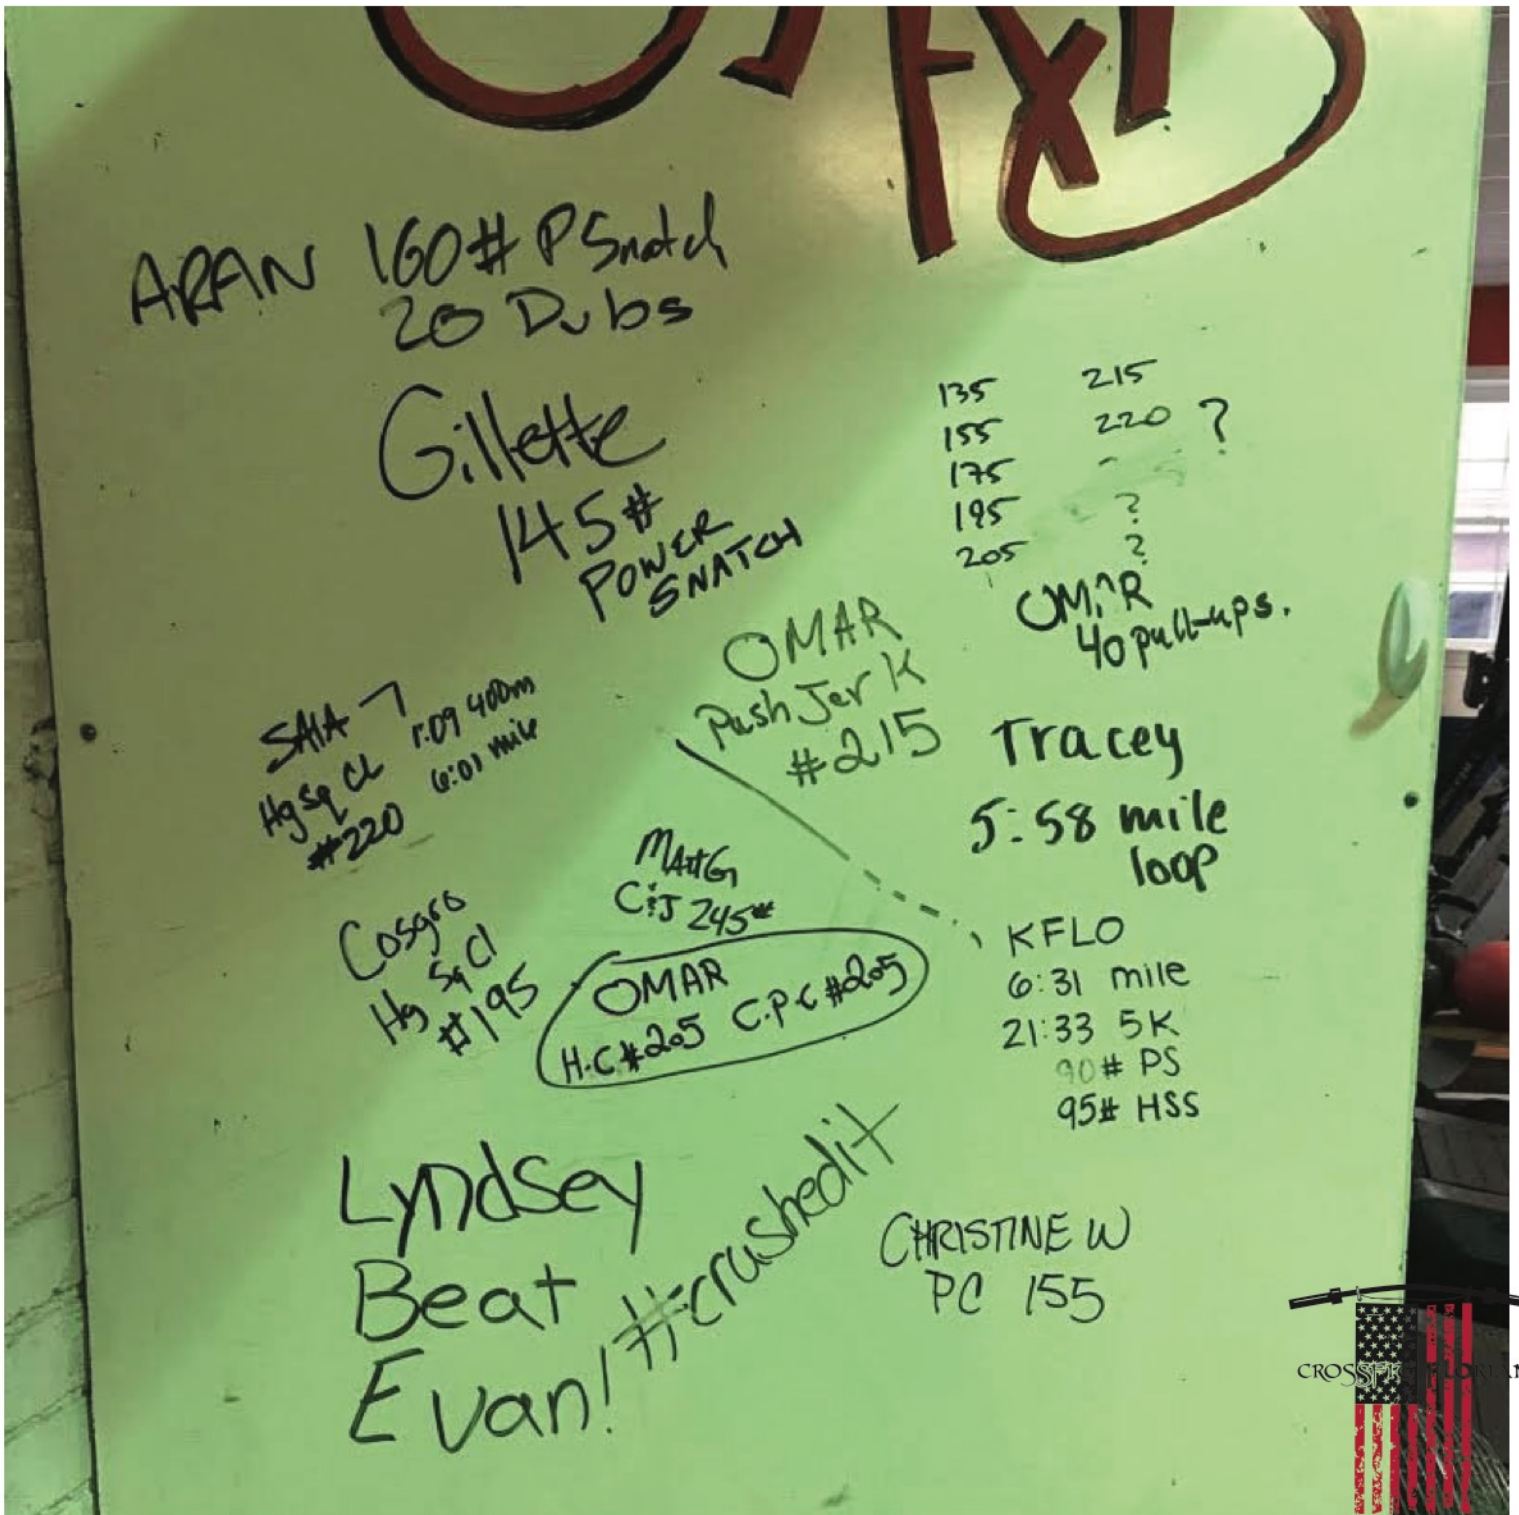 ARAN 160# P Snatch
20 Dubs
Gillette
145#
POWER
SNATCH
135 215
155 220 ?
175
195 ?
205 ?
OMAR
40 pull-ups.
OMAR
Push Jerk
#215
SAIA
Hg Sq CL
#220
1:09 400m
6:01 mile
Tracey
5:58 mile
loop
MattG
C&J 245#
Cosgro
Hg Sq Cl
#195
OMAR
H.C #205 C.P.C #205
KFLO
6:31 mile
21:33 5K
90# PS
95# HSS
Lyndsey
Beat
Evan! #crushedit
CHRISTINE W
PC 155
CROSSFIT FLORIAN